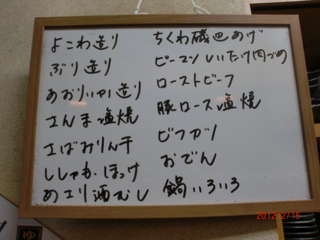 よこわ造り
ぶり造り
あおりいか造り
さんま塩焼
さばみりん干
ししゃも・ほっけ
めエリ酒むし
ちくわ磯辺あげ
ピーマンしいたけ肉づめ
ローストビーフ
豚ロース塩焼
ビフカツ
おでん
鍋いろいろ
2012/2/15